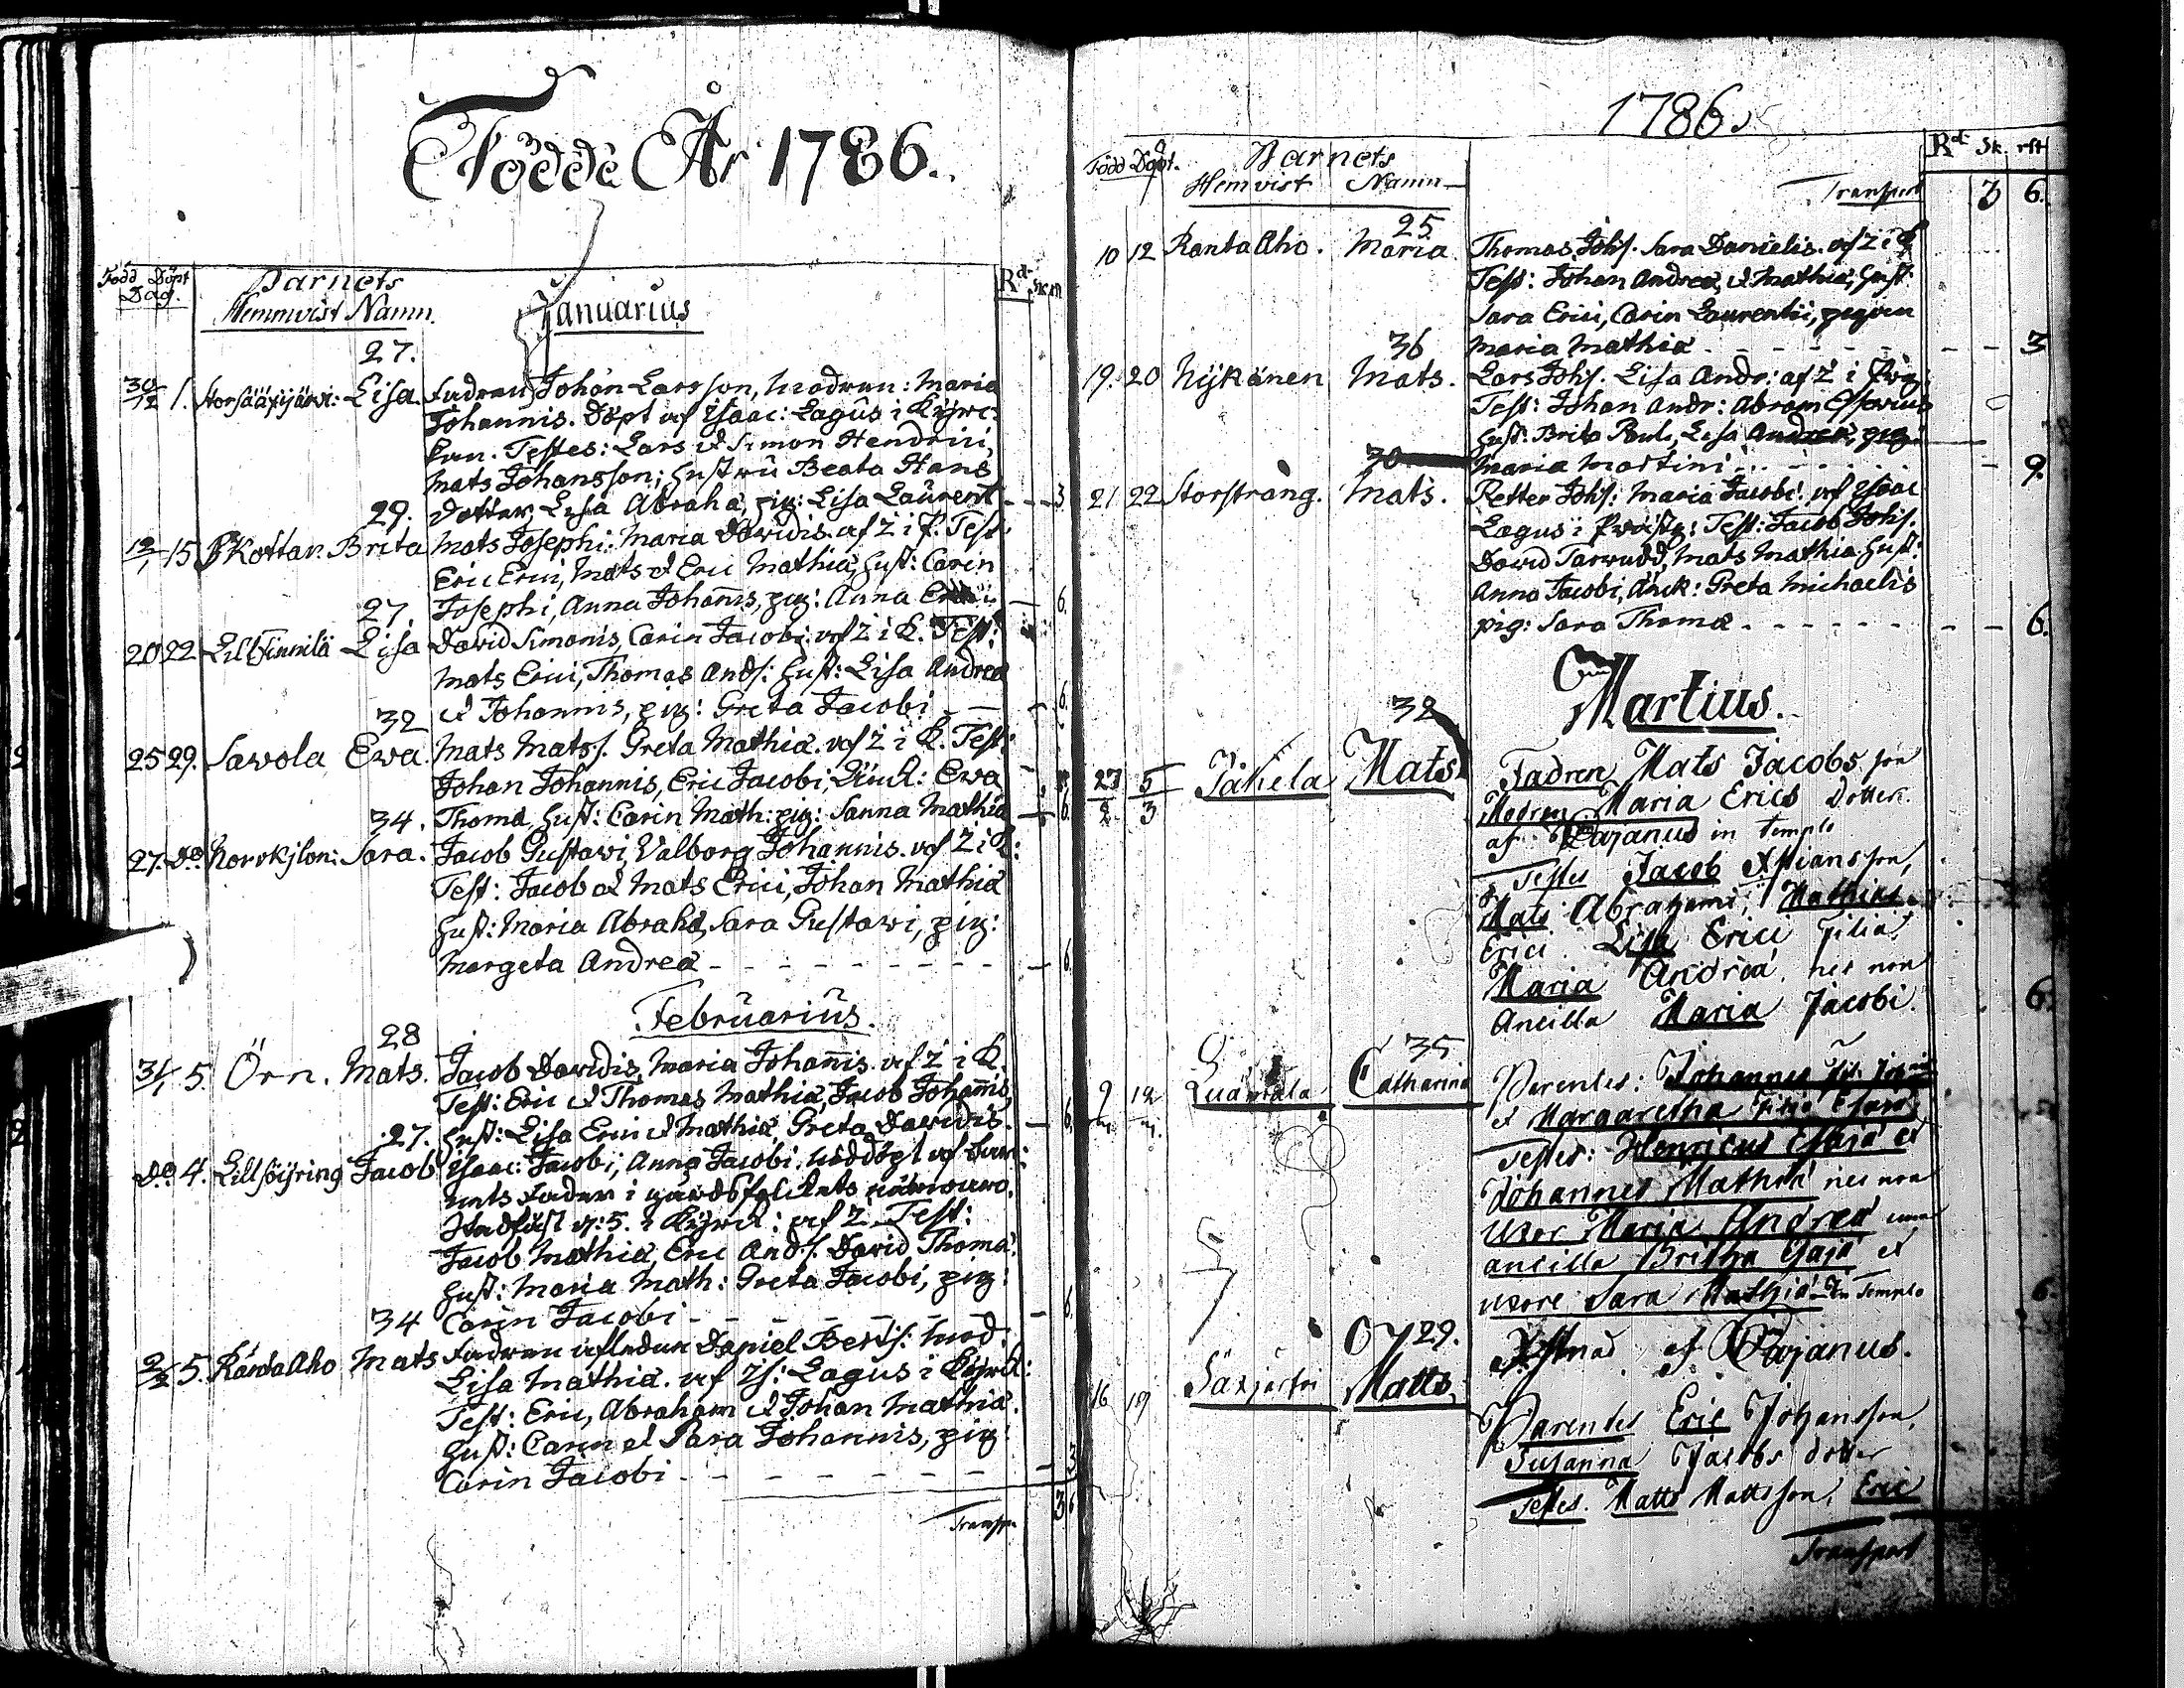 Födde År 1786.
Född Döpt Barnets Rd. Sk. rst
Dag. Hemmvist Namn. Januarius
27.
30/12 1. Storsääxjärvi: Lisa. Fadren Johan Larsson, Modren: Maria
Johannis. Döpt af Isaac: Lagus i Kÿrc-
kan. Testes: Lars et Simon Hendrici,
Mats Johansson; Hustru Beata Hans
dotter, Lisa Abrahæ, pig: Lisa Laurent - - 3
29.
12/1 15 Kottan. Brita Mats Josephi: Maria Davidis. af Z i P. Test:
Eric Erici, Mats et Eric Mathiæ, Hust: Carin
Josephi, Anna Johanis, pig: Anna - 6.
27.
20 22 Lill Finnilä Lisa David Simonis, Carin Jacobi. af Z i K. Test:
Mats Erici, Thomas Ands: Hust: Lisa Andreæ
et Johannis, pig: Greta Jacobi - - - 6.
32
25 29. Savola Ewa. Mats Mats s. Greta Mathiæ. af Z i K. Test:
Johan Johannis, Eric Jacobi, Änck: Ewa
Thomæ, Hust: Carin Math: pig: Sanna Mathiæ - 6
34.
27. Do: Sara. Jacob Gustavi, Valborg Johannis. af Z i K:
Test: Jacob et Mats Erici, Johan Mathiæ
Hust: Maria Abrahæ, Sara Gustavi, pig:
Margeta Andreæ - - - - - - - - - 6
Februarius.
28
31/1 5. Örn. Mats. Jacob Davidis, Maria Johanis. af Z i K.
Test: Eric et Thomas Mathiæ, Jacob Johanis,
Hust: Lisa Erici et Mathiæ, Greta Davidis. - 6
27.
Do 4. Jacob Isaac: Jacobi, Anna Jacobi. nöddöpt af
Fadren i gårdsfolckets närwaro.
Stadfäst d: 5. i Kÿrck: af Z. Test:
Jacob Mathiæ, Eric Ands. David Thomæ.
Hust: Maria Math: Greta Jacobi, pig:
Carin Jacobi - - - - - - - - 6
34
2/2 5. Ranta Aho Mats Fadren afledne Daniel Berts: Mod.
Lisa Mathiæ. af Is: Lagus i Kÿrck:
Test: Eric, Abraham et Johan Mathiæ.
Hust: Carin et Sara Johannis, pig:
Carin Jacobi - - - - - - - - 3
Transp. 3 6
1786.
Född Döpt. Barnets Rd. Sk. rst
Hemvist Namn
Transport 3 6.
25
10 12 Ranta Aho. Maria Thomas Johs. Sara Danielis. af Z i K
Test: Johan Andreæ, et Mathiæ, Hust:
Sara Erici, Carin Laurentii, pigan
Maria Mathiæ - - - - - - - 3
36
19. 20 Nÿkänen Mats. Lars Johs. Lisa Andr: af Z i
Test: Johan Andr: Abram
Hust: Brita Pauli, Lisa Andreæ, pig:
Maria Martini - - - - - 9.
30
21 22 Storstrång. Mats. Petter Johs: Maria Jacobi. af Isaac
Lagus i Prästg: Test: Jacob Johs.
David Tarwudd, Mats Mathiæ. Hust:
Anna Jacobi, Änck: Greta Michaelis
pig: Sara Thomæ - - - - - - - 6.
Martius.
32
23/2 5/3 Påhela Mats Fadren Mats Jacobs son
Modren Maria Erics Dotter.
af Cajanus in templo
Testes Jacob Xstiansson,
Mats Abrahami, Mathias
Erici. Lisa Erici Filia
Maria Andreæ. nec non
Ancilla Maria Jacobi. 6.
35
9 12 Catharina Parentes: Johannes
et Margaretha
Testes: Henricus Esaiæ et
Johannes Mathiæ nec non
uxor Maria Andreæ una
ancilla Britha Esaiæ et
uxore Sara Mathiæ In Templo 6.
Xstnad af Cajanus.
29.
16 19 Säxjerfvi Matts, Parentes Eric Johansson,
Susanna Jacobs dotter
Testes. Matts Mattsson, Eric
Transport